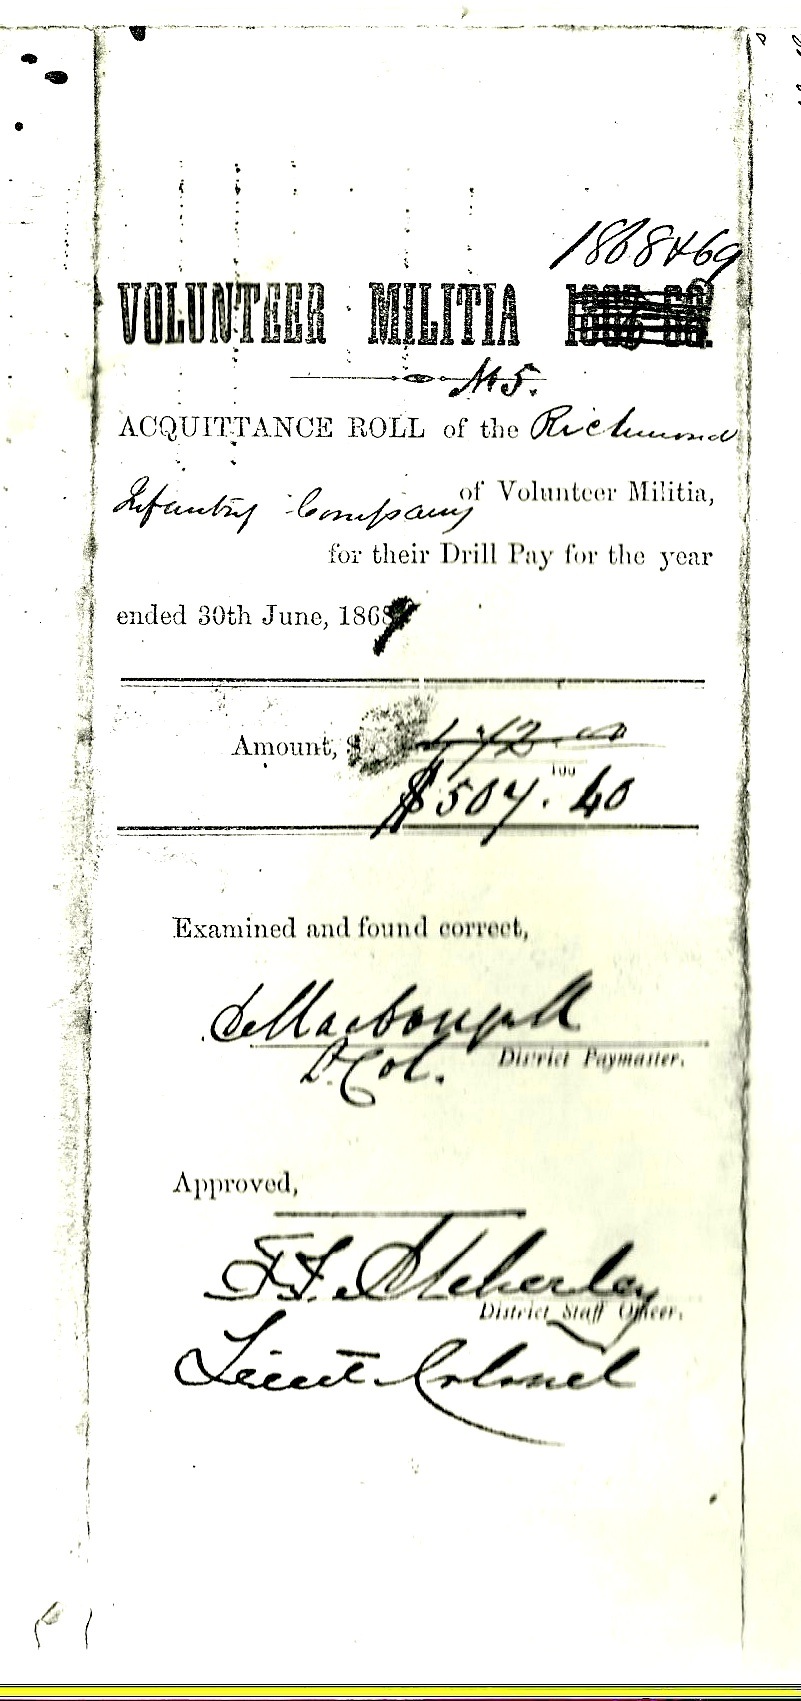 1868 & 69
VOLUNTEER MILITIA
No 5.
ACQUITTANCE ROLL of the Richmond
Infantry Company of Volunteer Militia,
for their Drill Pay for the year
ended 30th June, 1869
Amount, $
$507.40
100
Examined and found correct,
District Paymaster.
Lt. Col.
Approved,
F.T. Atcherley
District Staff Officer.
Lieut-Colonel